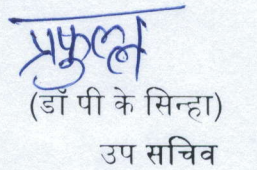 प्रफुल्ल
(डॉ पी के सिन्हा)
उप सचिव